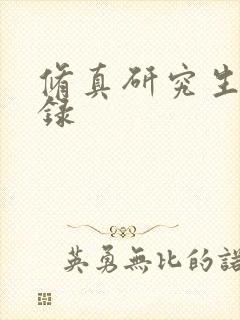 脩真研究生
録
英勇無比的諾